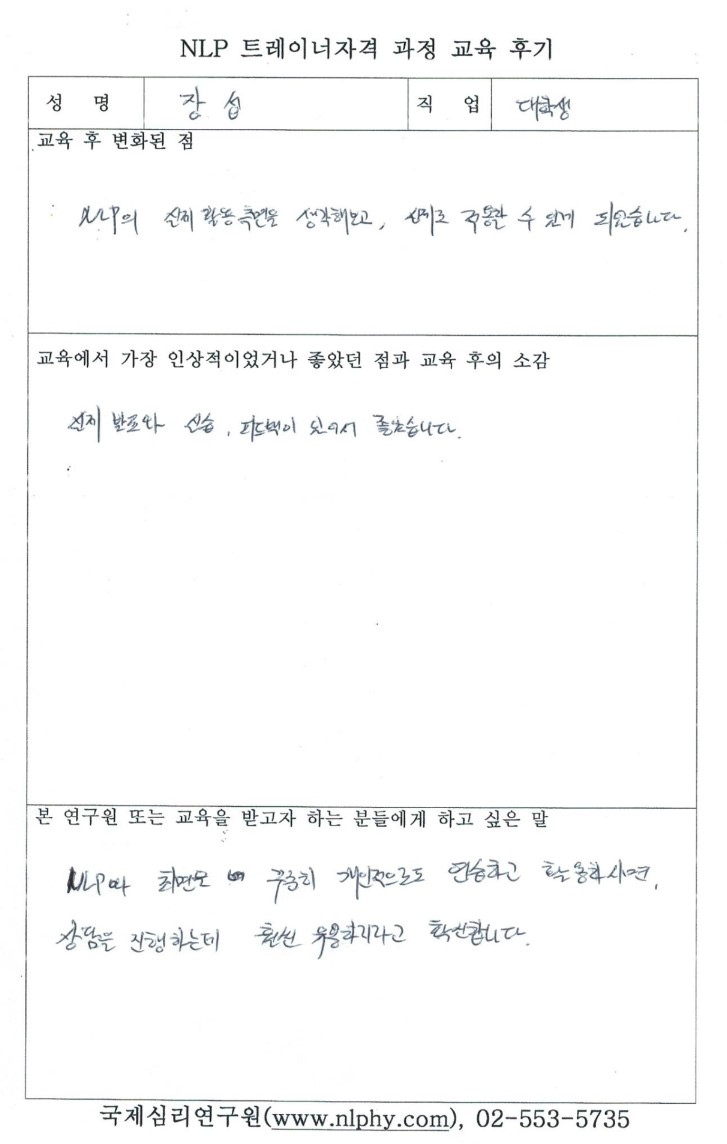 NLP 트레이너자격 과정 교육 후기
성 명 장 섭 직 업 대학생
교육 후 변화된 점
NLP의 실제 활동측면을 생각해보고, 실제로 적용할 수 있게 되었습니다.
교육에서 가장 인상적이었거나 좋았던 점과 교육 후의 소감
실제 발표와 실습, 피드백이 있어서 좋았습니다.
본 연구원 또는 교육을 받고자 하는 분들에게 하고 싶은 말
NLP와 최면을 꾸준히 개인적으로도 연습하고 활용하시면,
상담을 진행하는데 훨씬 유용하리라고 확신합니다.
국제심리연구원(www.nlphy.com), 02-553-5735